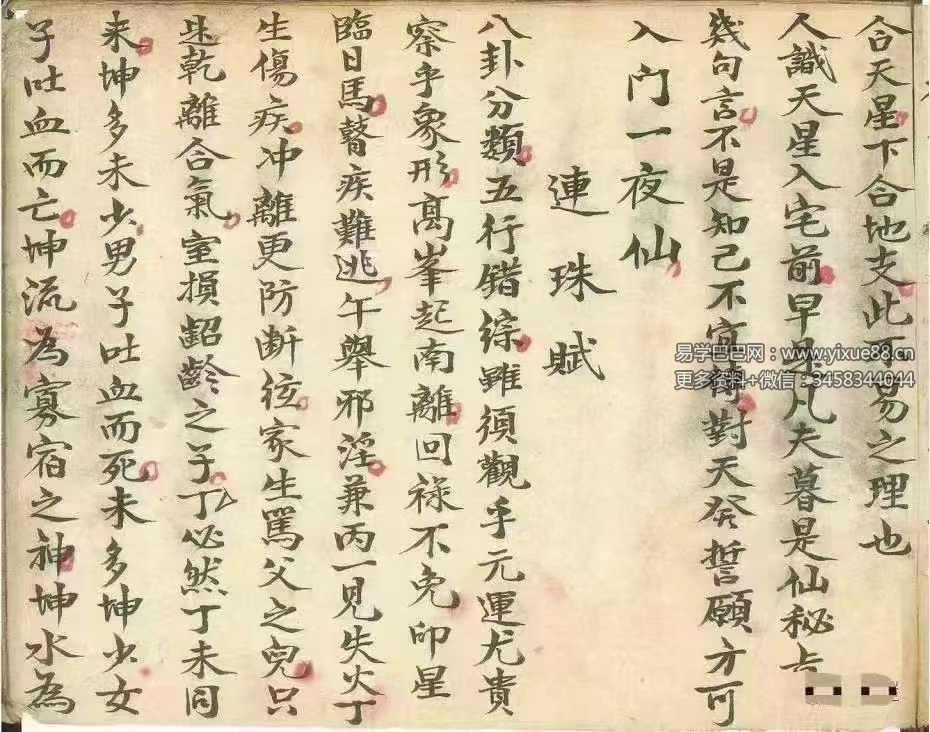 合天星下合地支此不易之理也
人識天星入宅前早是凡夫暮是仙秘
幾句言不是知己不肯傳對天發誓願方可
入门一夜仙
連珠賦
八卦分類五行错综雖須觀乎元運尤貴
察乎象形高峯起南離回禄不免印星
臨日馬瞽疾難逃午舉邪淫兼丙一見失火丁
生傷疾冲離更防断弦家生罵父之兒只
是乾離合氣室損齠齡之子丁必然丁未同
来坤多未少男子吐血而死未多坤少女
子吐血而亡坤流為寡宿之神坤水為
易学巴巴网:www.yixue88.cn
更多资料+微信:3458344044